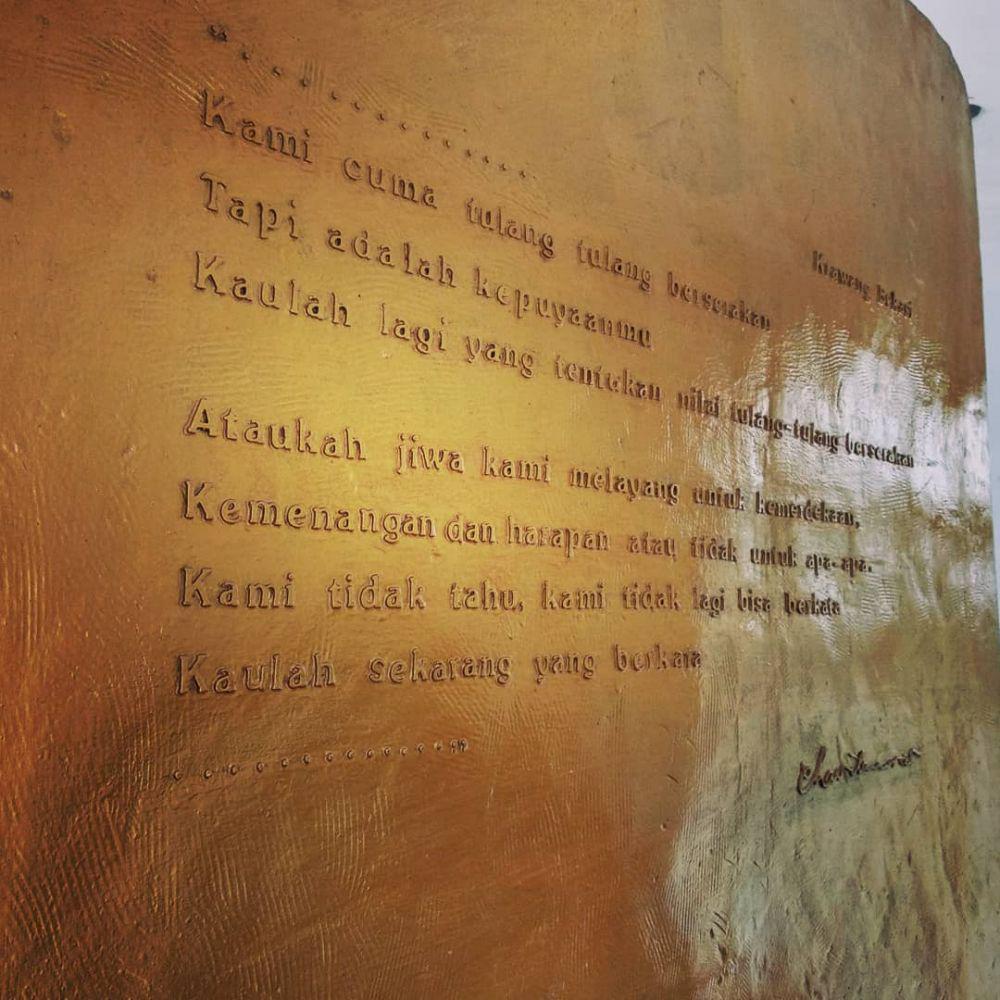 "..............
Krawang Bekasi
Kami cuma tulang tulang berserakan
Tapi adalah kepuyaanmu
Kaulah lagi yang tentukan nilai tulang-tulang berserakan
Ataukah jiwa kami melayang untuk kemerdekaan,
Kemenangan dan harapan atau tidak untuk apa-apa.
Kami tidak tahu, kami tidak lagi bisa berkata
Kaulah sekarang yang berkata
.............."